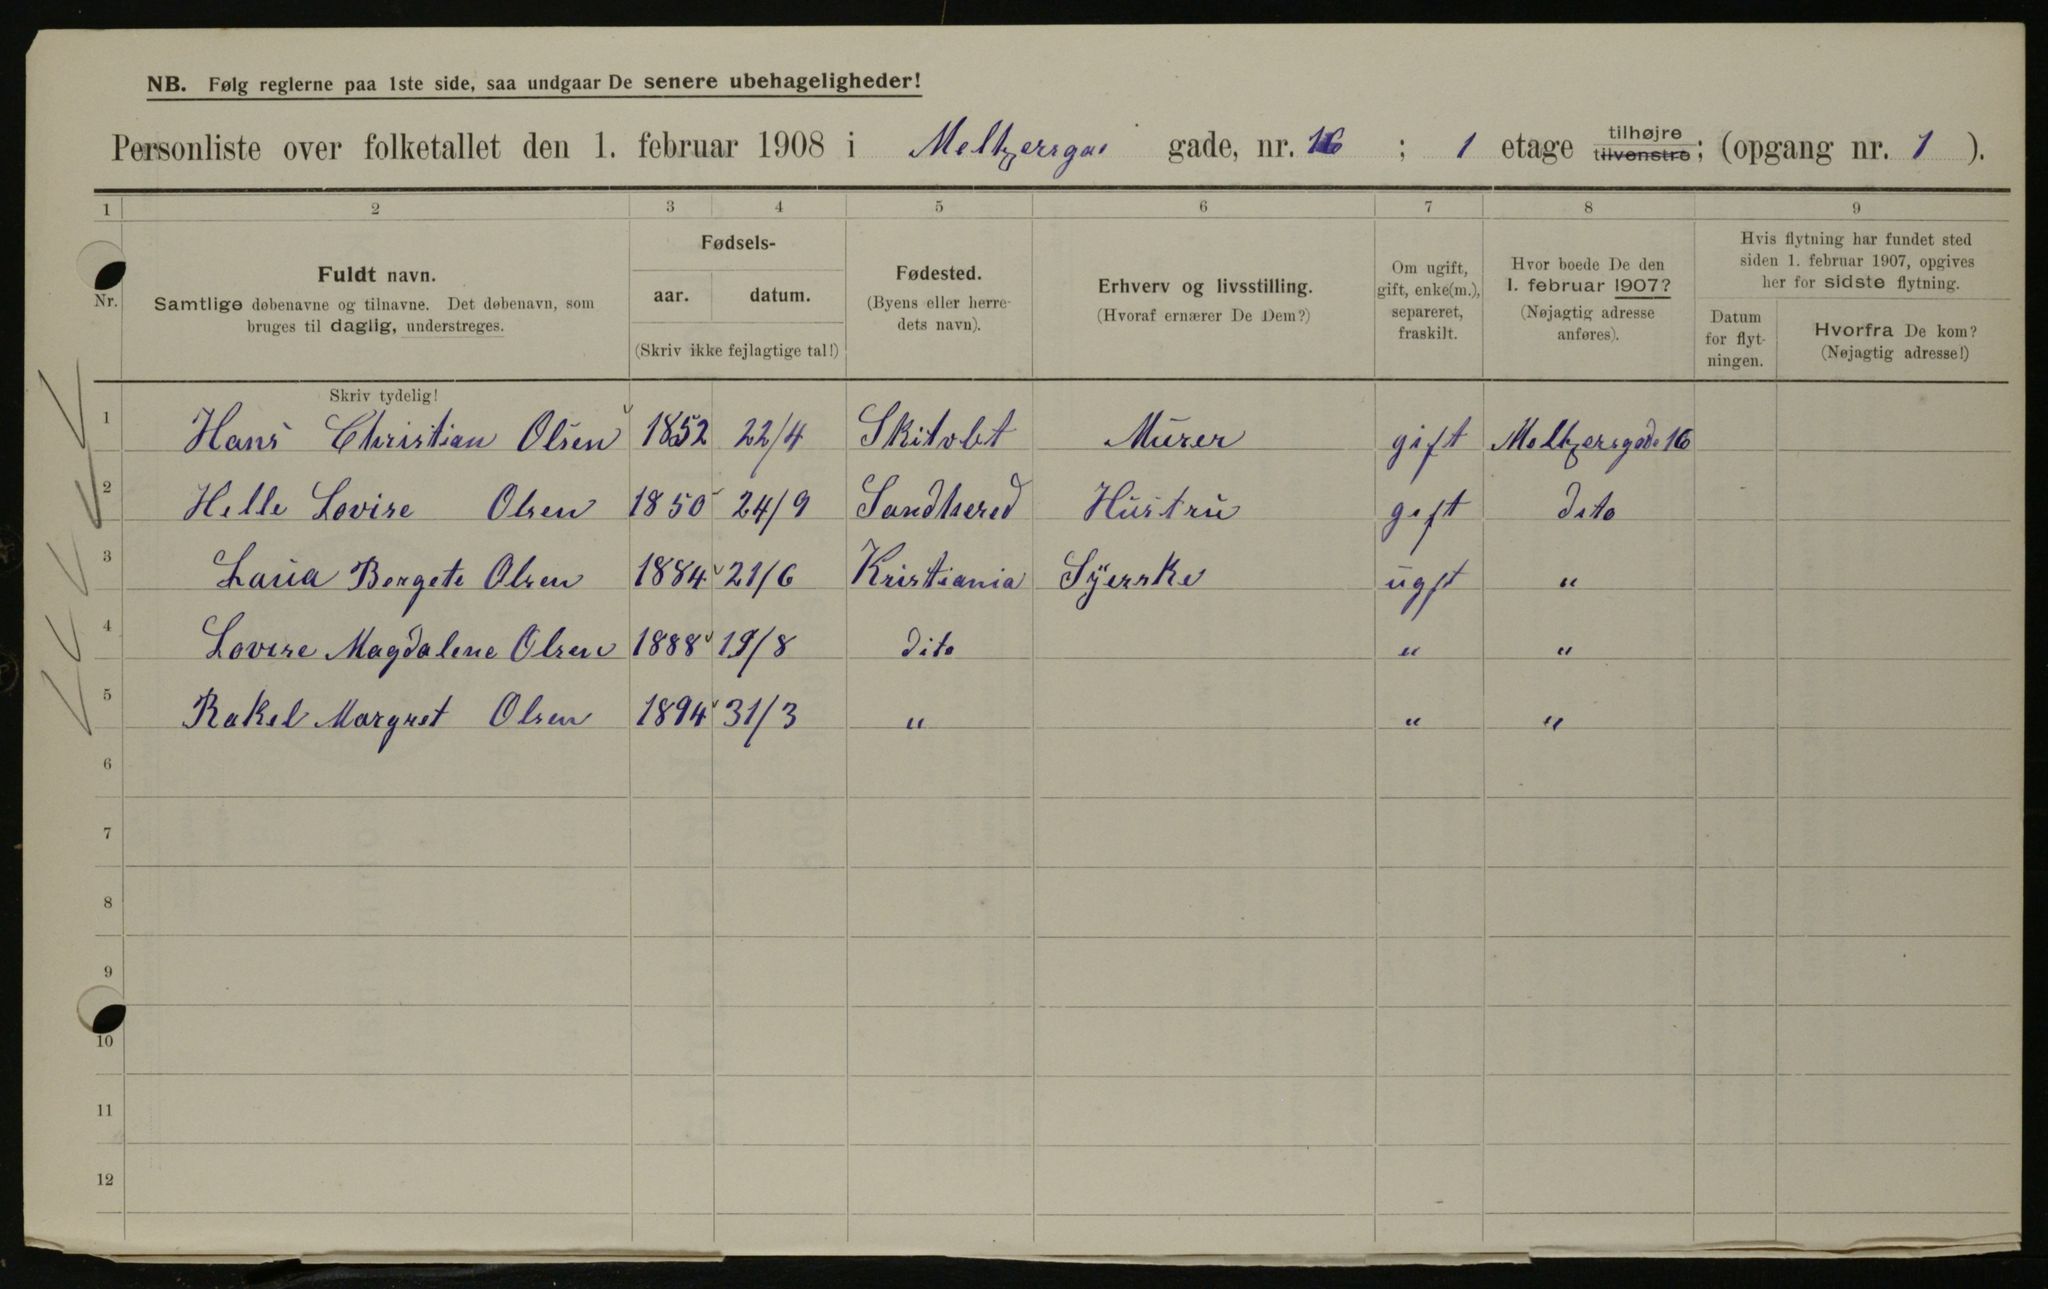 NB. Følg reglerne paa 1ste side, saa undgaar De senere ubehageligheder!
Personliste over folketallet den 1. februar 1908 i Meltzersga gade, nr. 16 ; 1 etage tilhøjre tilvenstre; (opgang nr. 1 ).
1 2 3 4 5 6 7 8 9
Nr.
Fuldt navn.
Samtlige døbenavne og tilnavne. Det døbenavn, som
bruges til daglig, understreges.
Fødsels-
aar. datum.
(Skriv ikke fejlagtige tal!)
Fødested.
(Byens eller herre-
dets navn).
Erhverv og livsstilling.
(Hvoraf ernærer De Dem?)
Om ugift,
gift, enke(m.),
separeret,
fraskilt.
Hvor boede De den
1. februar 1907?
(Nøjagtig adresse
anføres).
Hvis flytning har fundet sted
siden 1. februar 1907, opgives
her for sidste flytning.
Datum
for flyt-
ningen.
Hvorfra De kom?
(Nøjagtig adresse!)
Skriv tydelig!
1 Hans Christian Olsen 1852 22/4 Murer gift Meltzersgade 16
2 Helle Lovise Olsen 1850 24/9 Sandherred Hustru gift dito
3 Laura Bergete Olsen 1884 21/6 Kristiania Syerske ugft "
4 Lovise Magdalene Olsen 1888 19/8 dito " "
5 Rakel Margret Olsen 1894 31/3 " " "
6
7
8
9
10
11
12